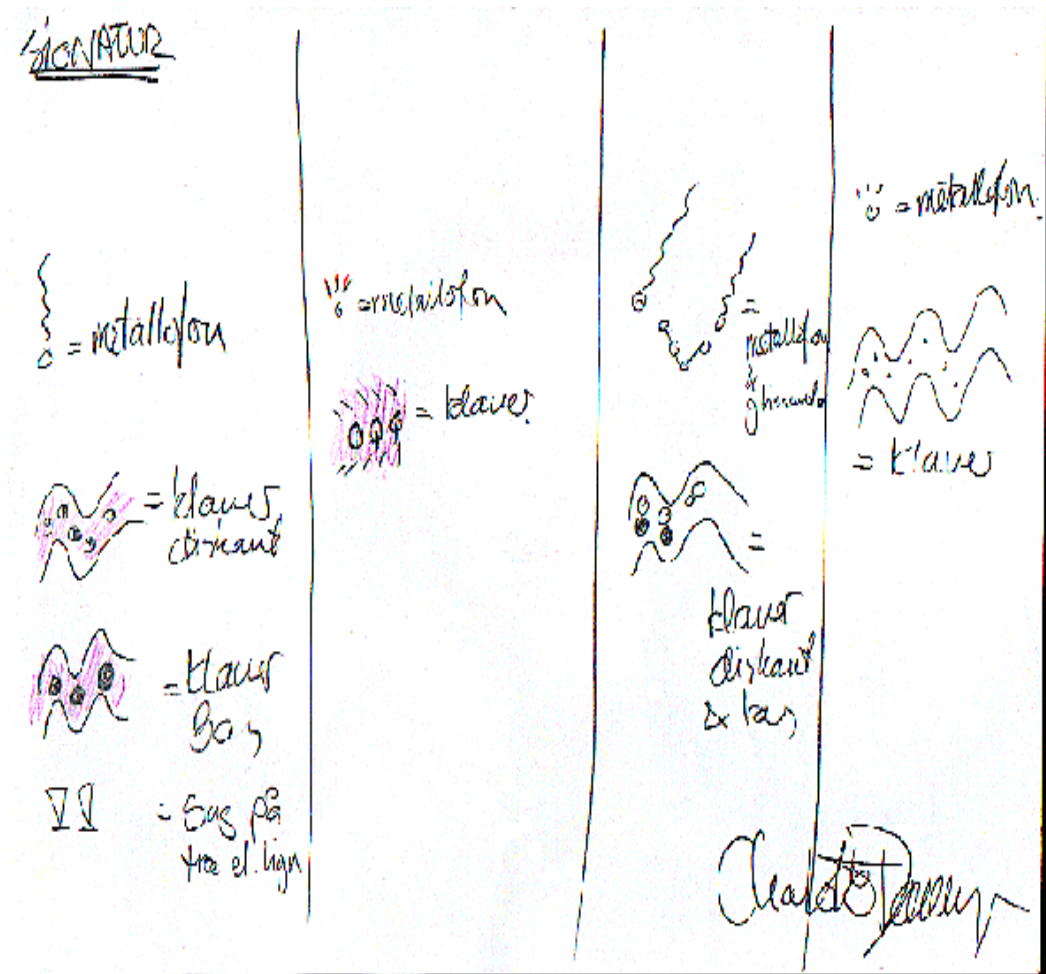 SIGNATUR
= metallofon
= klaver
diskant
= klaver
Bas
= Sus på
træ el. lign
= metallofon
= klaver
=
metallofon
glissando
=
klaver
diskant
& bas
= metallofon
= klaver